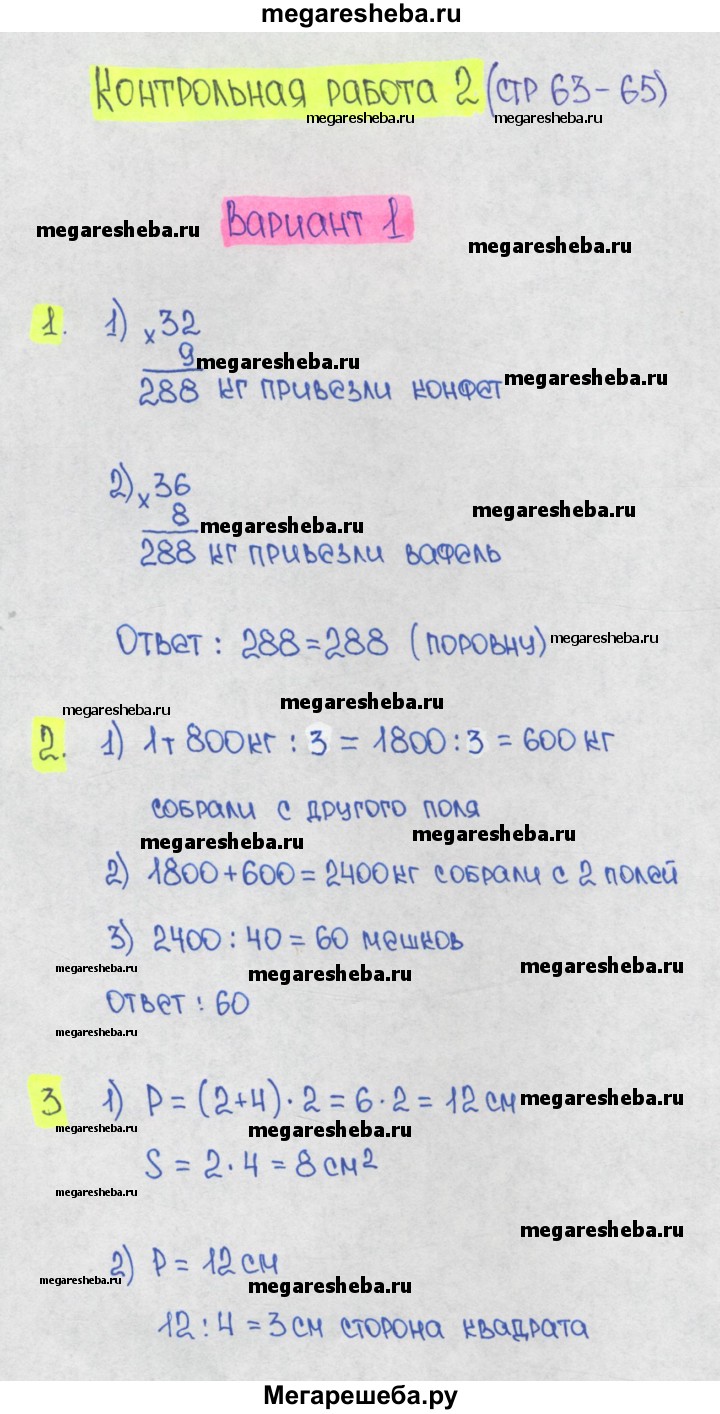 megaresheba.ru
Контрольная работа 2 (стр 63-65)
megaresheba.ru megaresheba.ru
Вариант 1
megaresheba.ru
megaresheba.ru
1. 1) × 32
9 megaresheba.ru
megaresheba.ru
288 кг привезли конфет
2) × 36
megaresheba.ru
8 megaresheba.ru
288 кг привезли вафель
Ответ: 288=288 (поровну) megaresheba.ru
megaresheba.ru megaresheba.ru
2. 1) 1т 800кг : 3 = 1800:3 = 600 кг
собрали с другого поля
megaresheba.ru megaresheba.ru
2) 1800+600=2400кг собрали с 2 полей
3) 2400:40=60 мешков
megaresheba.ru megaresheba.ru megaresheba.ru
Ответ: 60
megaresheba.ru
3 1) P=(2+4)·2=6·2=12 см megaresheba.ru
megaresheba.ru megaresheba.ru
S=2·4=8 см²
megaresheba.ru
megaresheba.ru
2) P=12 см
megaresheba.ru megaresheba.ru
12:4=3 см сторона квадрата
Мегарешеба.ру